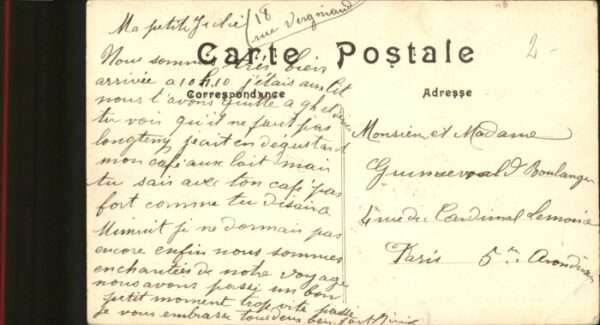 Ma petite Julie
18
rue Vergniaud
Carte Postale
Correspondance
Adresse
2-
Nous sommes très bien
arrivée a 10h10 j'étais au lit
nous t'avons quitte a 9h et demie
tu vois qu'il ne faut pas
longtemp, et en dégustant
mon café au lait mais
tu sais avec ton café pas
fort comme tu disais a
Minuit je ne dormais pas
encore enfin nous sommes
enchantées de notre voyage
nous avons passé un bon
petit moment trop vite passé
je vous embrasse tous deux bien fort
Monsieur et Madame
Boulanger
rue du Cardinal Lemoine
Paris 5me Arondis